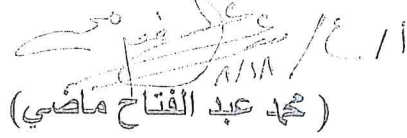 أ / ع /
٨/١٨
( محمد عبد الفتاح ماضي )